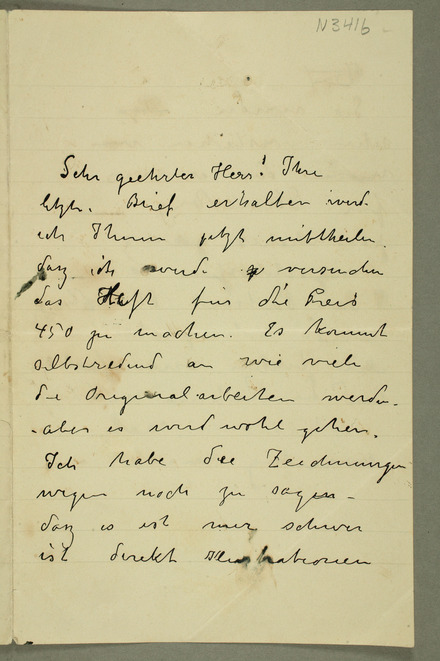 N3416
Sehr geehrter Herr! Ihre
letzt. Brief erhalten werd
ich Ihnen jetzt mittheilen.
daz ich werde versuchen
das Heft für die Preis
450 zu machen. Es kommt
selbstredend an wie viele
die Originalarbeiten werden.
aber es wird wohl gehen.
Ich habe die Zeichnungen
wegen noch zu sagen -
daz es ist mir schwer
ist direkt Illustrationen